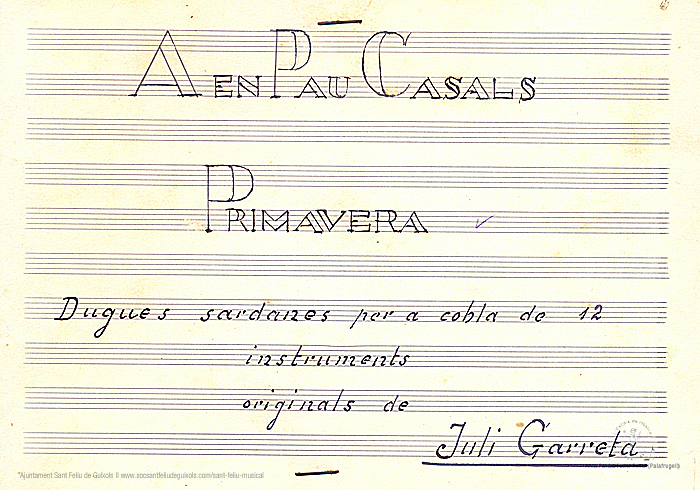 A EN PAU CASALS
PRIMAVERA
Dugues sardanes per a cobla de 12
instruments
originals de
Juli Garreta
"Ajuntament Sant Feliu de Guíxols II www.socsantfeliudeguixols.com/sant-feliu-musical
(Palafrugell)